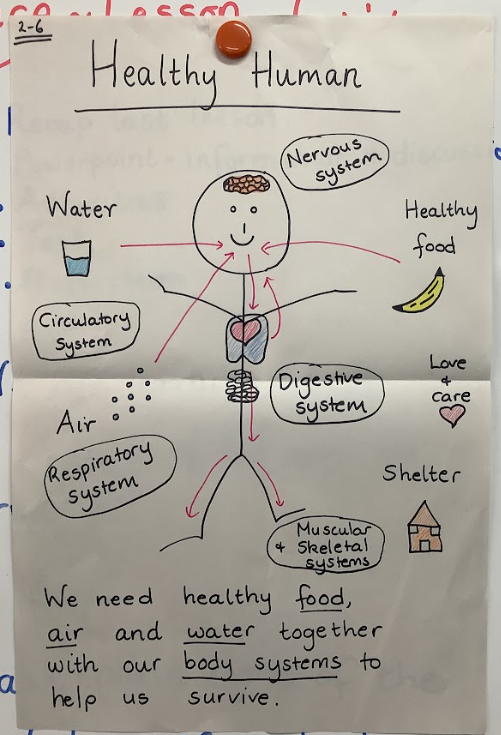 2-6
Healthy Human
Nervous
system
Water
Healthy
food
Circulatory
System
Love
+
care
Digestive
system
Air
Respiratory
system
Shelter
Muscular
+ Skeletal
systems
We need healthy food,
air and water together
with our body systems to
help us survive.